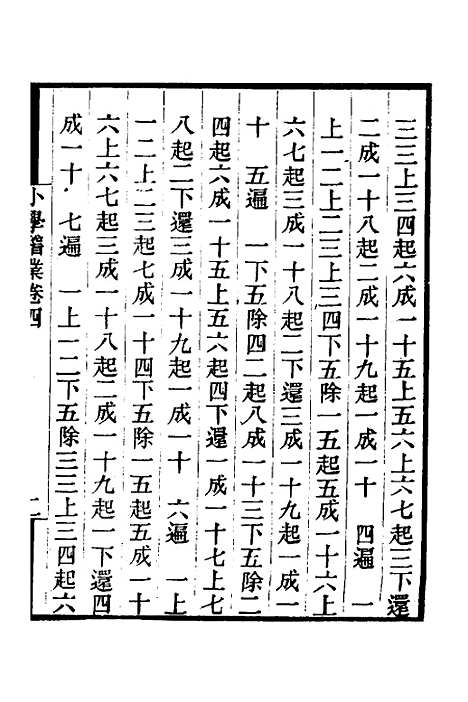 三三上三四起六成一十五上五六上六七起三下還
二成一十八起二成一十九起一成一十　四遍　一
上一二上二三上三四下五除一五起五成一十六上
六七起三成一十八起二下還三成一十九起一成一
十　五遍　一下五除四二起八成一十三下五除二
四起六成一十五上五六起四下還一成一十七上七
八起二下還三成一十九起一成一十　六遍　一上
一二上二三起七成一十四下五除一五起五成一十
六上六七起三成一十八起二成一十九起一下還四
成一十　七遍　一上一二下五除三三上三四起六
小學稽業卷四　二